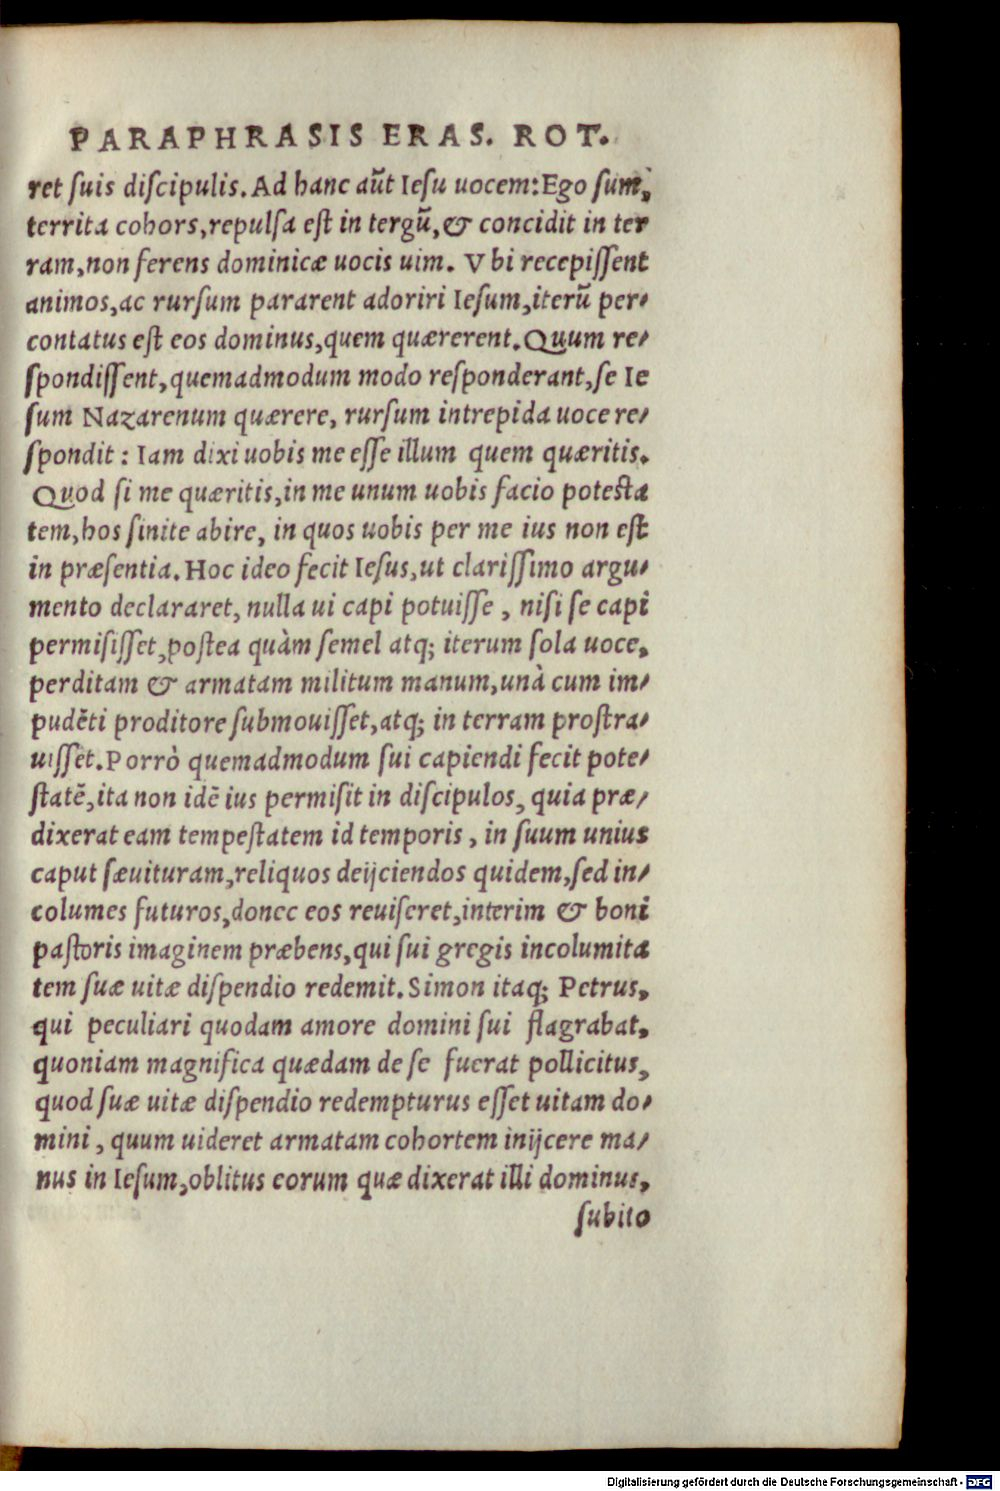 PARAPHRASIS ERAS. ROT.
ret suis discipulis. Ad hanc aūt Iesu uocem: Ego sum,
territa cohors, repulsa est in tergū, & concidit in ter
ram, non ferens dominicæ uocis uim. Vbi recepissent
animos, ac rursum pararent adoriri Iesum, iterū per-
contatus est eos dominus, quem quærerent. Quum re-
spondissent, quemadmodum modo responderant, se Ie
sum Nazarenum quærere, rursum intrepida uoce re-
spondit: Iam dixi uobis me esse illum quem quæritis.
Quod si me quæritis, in me unum uobis facio potesta
tem, hos sinite abire, in quos uobis per me ius non est
in præsentia. Hoc ideo fecit Iesus, ut clarissimo argu-
mento declararet, nulla ui capi potuisse, nisi se capi
permisisset, postea quàm semel atq; iterum sola uoce,
perditam & armatam militum manum, unà cum im-
pudēti proditore submouisset, atq; in terram prostra-
uisset. Porrò quemadmodum sui capiendi fecit pote-
statē, ita non idē ius permisit in discipulos, quia præ-
dixerat eam tempestatem id temporis, in suum unius
caput sæuituram, reliquos deijciendos quidem, sed in-
columes futuros, donec eos reuiseret, interim & boni
pastoris imaginem præbens, qui sui gregis incolumita
tem suæ uitæ dispendio redemit. Simon itaq; Petrus,
qui peculiari quodam amore domini sui flagrabat,
quoniam magnifica quædam de se fuerat pollicitus,
quod suæ uitæ dispendio redempturus esset uitam do-
mini, quum uideret armatam cohortem inijcere ma-
nus in Iesum, oblitus eorum quæ dixerat illi dominus,
subito
Digitalisierung gefördert durch die Deutsche Forschungsgemeinschaft - DFG